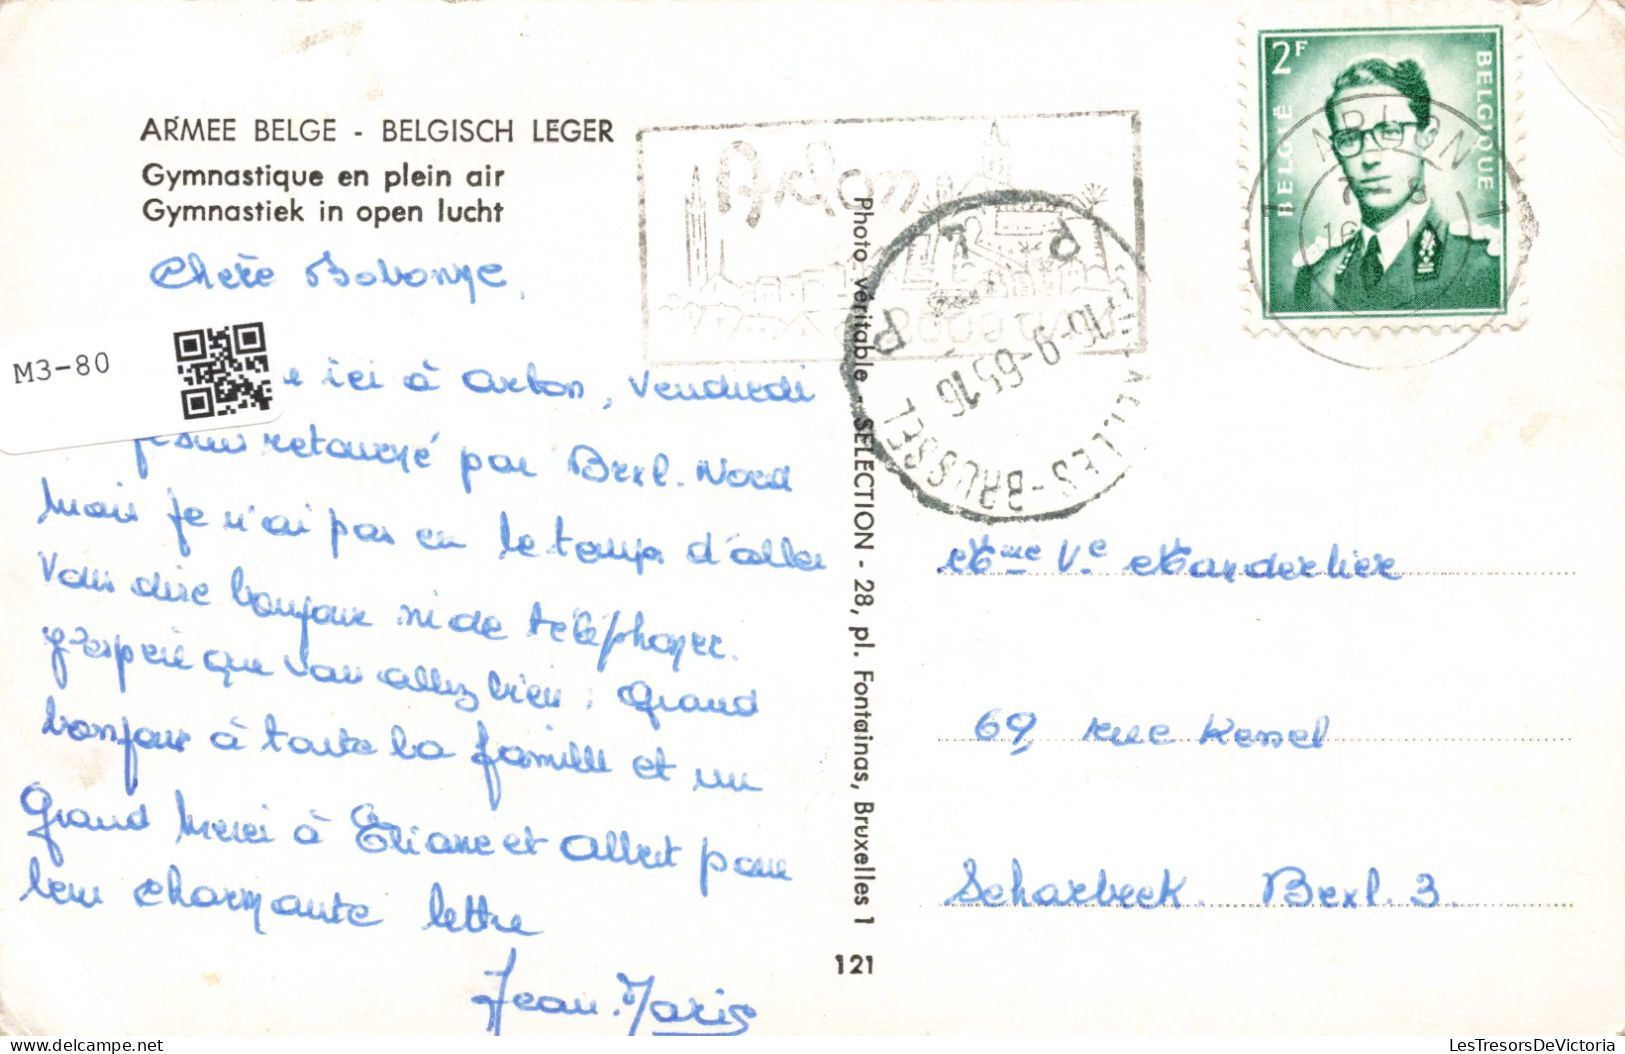 ARMEE BELGE - BELGISCH LEGER
Gymnastique en plein air
Gymnastiek in open lucht
Chère Bobonne,
ici à Arlon, Vendredi
retourné par Bxl. Nord
Mais je n'ai pas eu le temps d'aller
Vous dire bonjour ni de téléphoner.
J'espère que vous allez bien ; Grand
bonjour à toute la famille et un
Grand Merci à Eliane et Albert pour
leur charmante lettre
Jean-Marie
M3-80
Arlon
Photo véritable - SELECTION - 28, pl. Fontainas, Bruxelles 1
121
BRUSSEL
16-9-65 16
P P
2F
BELGIË
BELGIQUE
ARLON
Mme Ve Vanderlier
69, rue Kessel
Scharbeek. Bxl. 3.
M3-80 (Recto/Verso)
LesTresorsDeVictoria